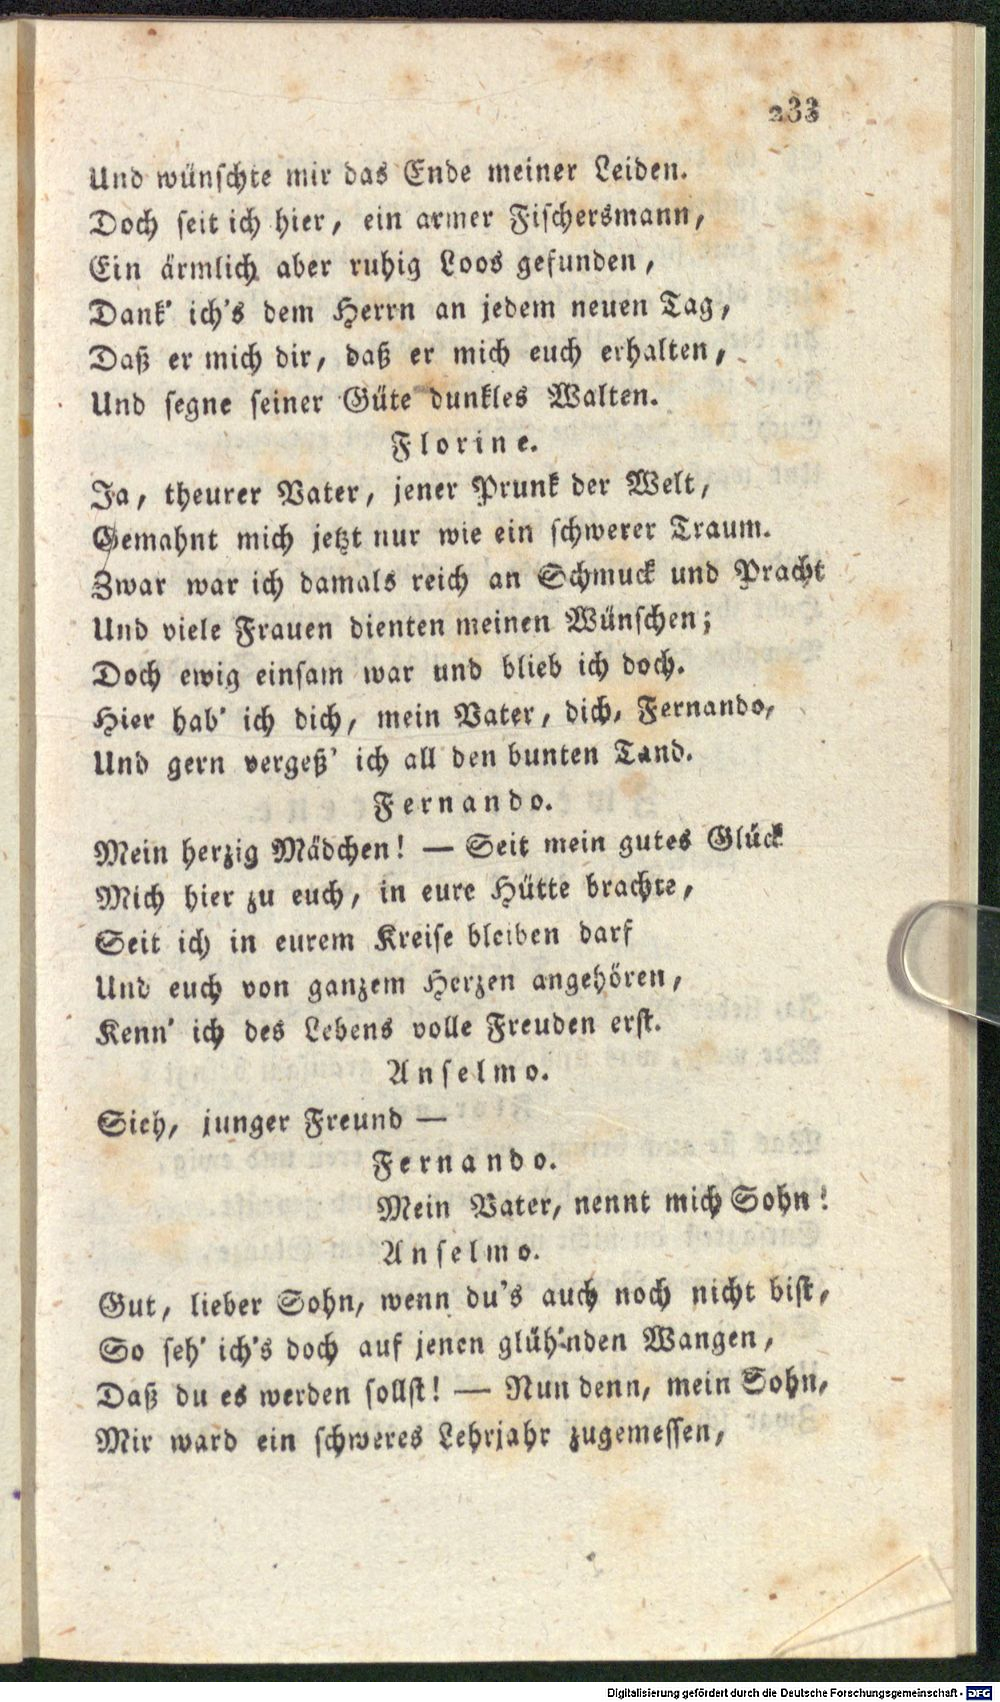 233
Und wünschte mir das Ende meiner Leiden.
Doch seit ich hier, ein armer Fischersmann,
Ein ärmlich aber ruhig Loos gefunden,
Dank' ich's dem Herrn an jedem neuen Tag,
Daß er mich dir, daß er mich euch erhalten,
Und segne seiner Güte dunkles Walten.
Florine.
Ja, theurer Vater, jener Prunk der Welt,
Gemahnt mich jetzt nur wie ein schwerer Traum.
Zwar war ich damals reich an Schmuck und Pracht
Und viele Frauen dienten meinen Wünschen;
Doch ewig einsam war und blieb ich doch.
Hier hab' ich dich, mein Vater, dich, Fernando,
Und gern vergeß' ich all den bunten Tand.
Fernando.
Mein herzig Mädchen! — Seit mein gutes Glück
Mich hier zu euch, in eure Hütte brachte,
Seit ich in eurem Kreise bleiben darf
Und euch von ganzem Herzen angehören,
Kenn' ich des Lebens volle Freuden erst.
Anselmo.
Sieh, junger Freund —
Fernando.
Mein Vater, nennt mich Sohn!
Anselmo.
Gut, lieber Sohn, wenn du's auch noch nicht bist,
So seh' ich's doch auf jenen glüh'nden Wangen,
Daß du es werden sollst! — Nun denn, mein Sohn,
Mir ward ein schweres Lehrjahr zugemessen,
Digitalisierung gefördert durch die Deutsche Forschungsgemeinschaft - DFG